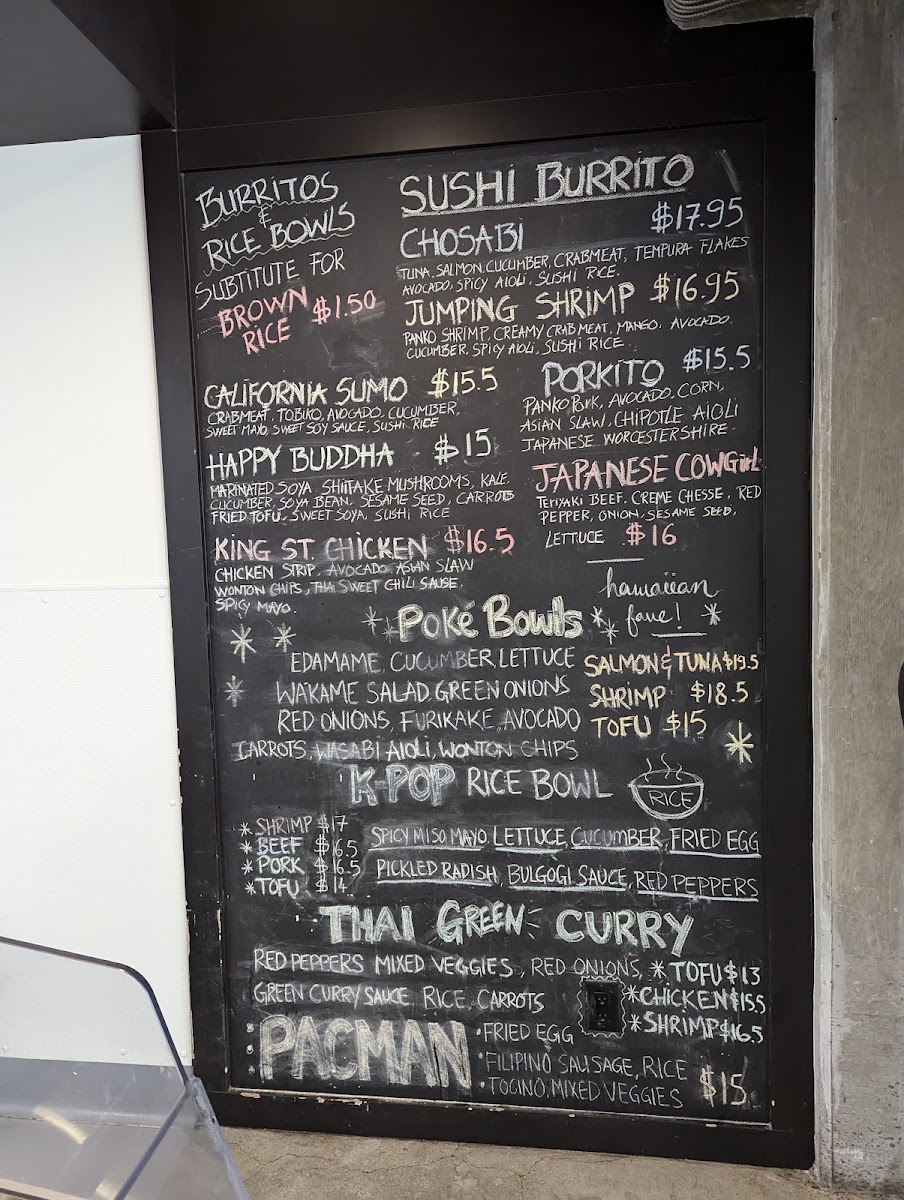 BURRITOS
&
RICE BOWLS
SUBTITUTE FOR
BROWN
RICE $1.50
SUSHI BURRITO
CHOSABI $17.95
TUNA, SALMON, CUCUMBER, CRABMEAT, TEMPURA FLAKES
AVOCADO, SPICY AIOLI, SUSHI RICE.
JUMPING SHRIMP $16.95
PANKO SHRIMP, CREAMY CRABMEAT, MANGO, AVOCADO.
CUCUMBER, SPICY AIOLI, SUSHI RICE.
CALIFORNIA SUMO $15.5
CRABMEAT, TOBIKO, AVOCADO, CUCUMBER,
SWEET MAYO, SWEET SOY SAUCE, SUSHI RICE
HAPPY BUDDHA $15
MARINATED SOYA SHIITAKE MUSHROOMS, KALE,
CUCUMBER, SOYA BEAN, SESAME SEED, CARROTS
FRIED TOFU, SWEET SOYA, SUSHI RICE
KING ST. CHICKEN $16.5
CHICKEN STRIP, AVOCADO ASIAN SLAW
WONTON CHIPS, THAI SWEET CHILI SAUSE,
SPICY MAYO.
PORKITO $15.5
PANKO PORK, AVOCADO, CORN,
ASIAN SLAW, CHIPOTLE AIOLI
JAPANESE WORCESTERSHIRE
JAPANESE COWGirL
TERIYAKI BEEF, CREME CHESSE, RED
PEPPER, ONION, SESAME SEED,
LETTUCE $16
hawaiian
fave!
Poké Bowls
EDAMAME, CUCUMBER, LETTUCE
WAKAME SALAD, GREEN ONIONS
RED ONIONS, FURIKAKE, AVOCADO
CARROTS, WASABI AIOLI, WONTON CHIPS
SALMON & TUNA $19.5
SHRIMP $18.5
TOFU $15
K-POP RICE BOWL
RICE
* SHRIMP $17
* BEEF $16.5
* PORK $16.5
* TOFU $14
SPICY MISO MAYO, LETTUCE, CUCUMBER, FRIED EGG
PICKLED RADISH, BULGOGI SAUCE, RED PEPPERS
THAI GREEN CURRY
RED PEPPERS MIXED VEGGIES, RED ONIONS,
GREEN CURRY SAUCE, RICE, CARROTS
* TOFU $13
* CHICKEN $15.5
* SHRIMP $16.5
PACMAN
• FRIED EGG
• FILIPINO SAUSAGE, RICE
• TOCINO, MIXED VEGGIES $15